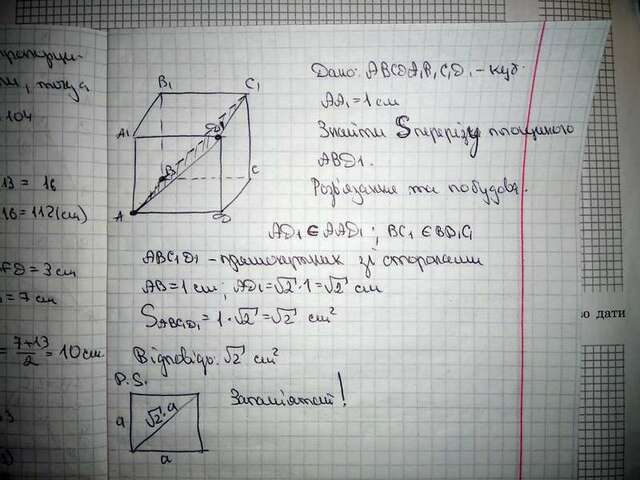 ти, тоді
104
13 = 16
16=112(см)
FD = 3 см
= 7 см
= 7+13/2 = 10 см
B₁
C₁
A₁
D₁
B
C
A
D
Дано: ABCDA₁B₁C₁D₁ - куб.
AA₁ = 1 см
Знайти S перерізу площиною
ABD₁.
Розв'язання та побудова.
AD₁ ∈ AAD₁ ; BC₁ ∈ BB₁C₁
ABC₁D₁ - прямокутник зі сторонами
AB = 1 см; AD₁ = √2 · 1 = √2 см
S ABC₁D₁ = 1 · √2 = √2 см²
Відповідь: √2 см²
P.S.
a
√2·a
a
Запам'ятай!
о дати